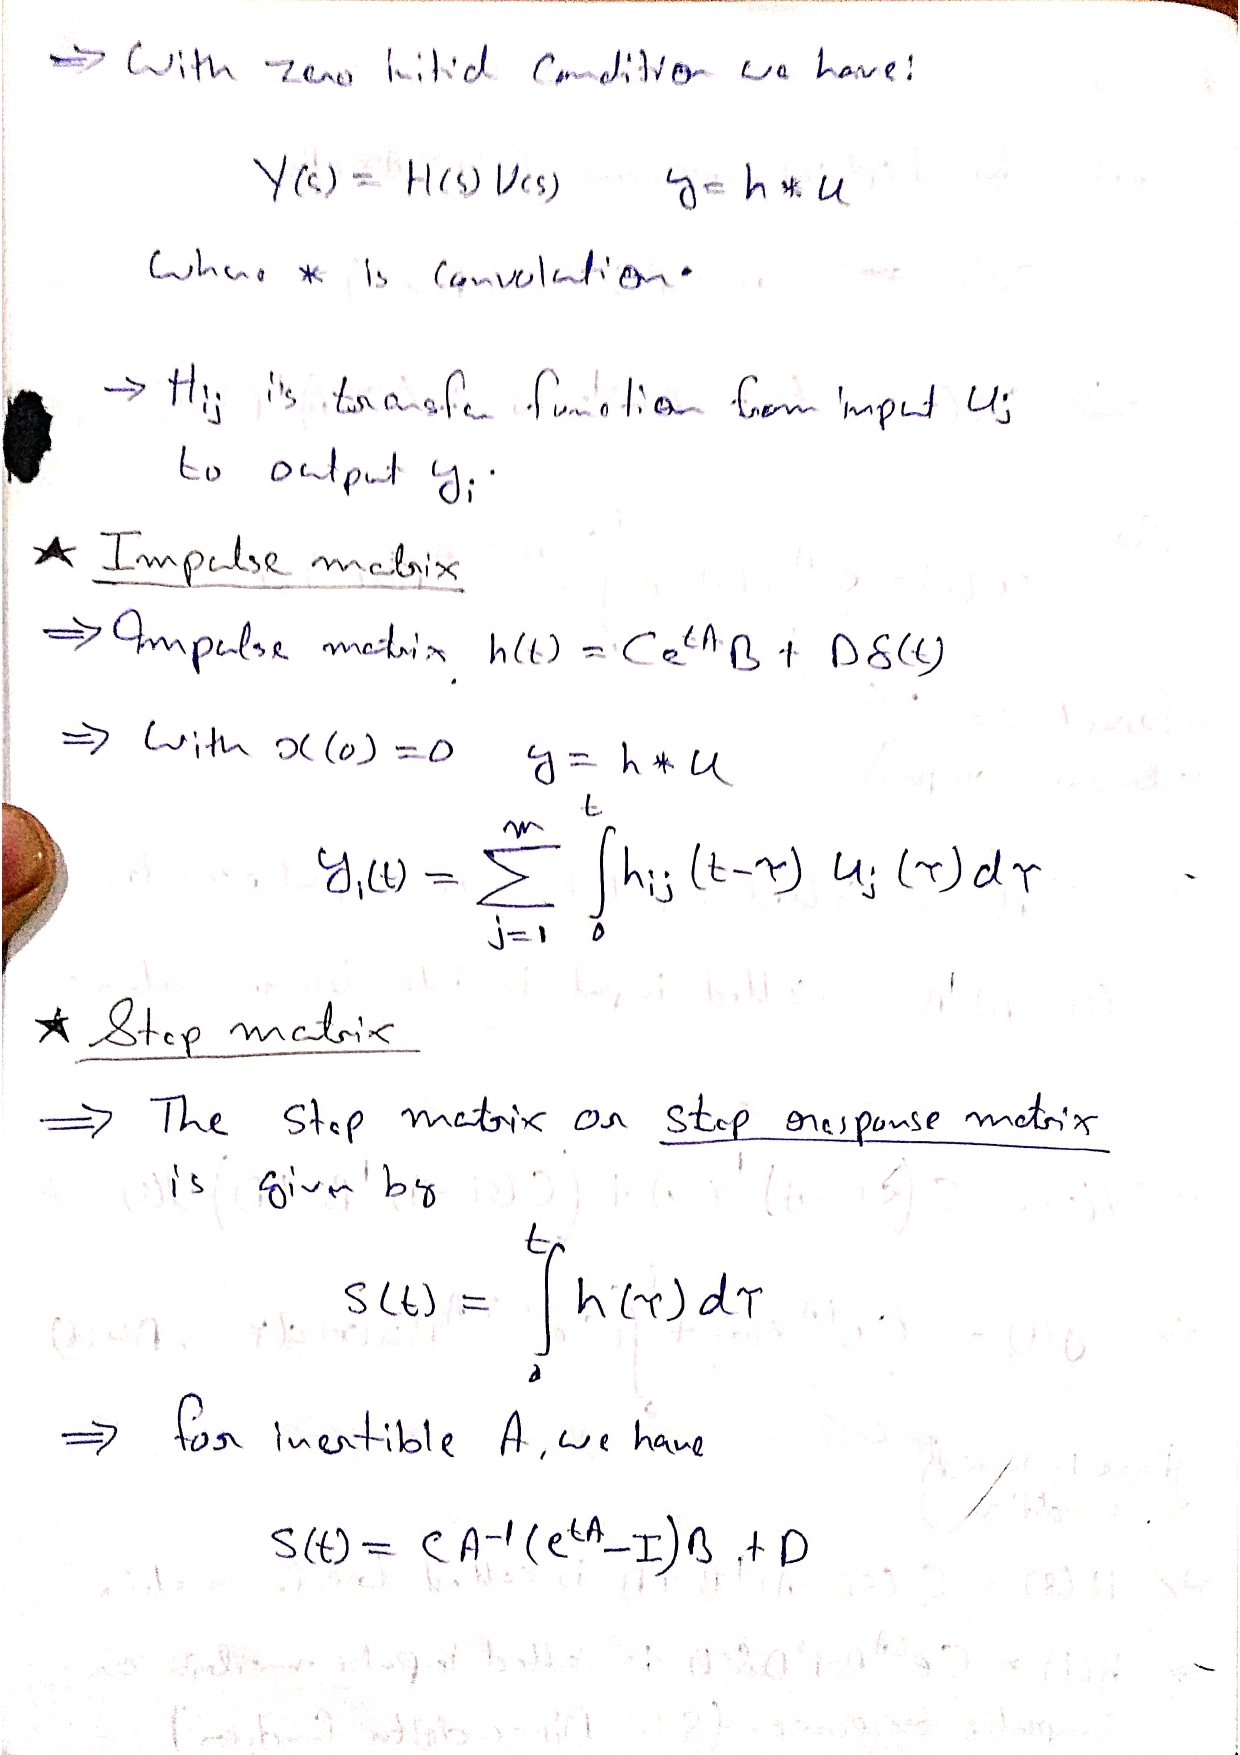 ⇒ With zero initial Condition we have:
Y(s) = H(s) U(s) y = h * u
Where * is convolution.
→ Hij is transfer function from input Uj
to output yi.
★ Impulse matrix
⇒ Impulse matrix h(t) = Ce^{tA}B + Dδ(t)
⇒ With x(0) = 0 y = h * u
yi(t) = ∑_{j=1}^{m} ∫_0^t hij (t-τ) uj (τ) dτ
★ Step matrix
⇒ The step matrix or step response matrix
is given by
S(t) = ∫_0^t h(τ) dτ
⇒ for invertible A, we have
S(t) = CA^{-1}(e^{tA}-I)B + D